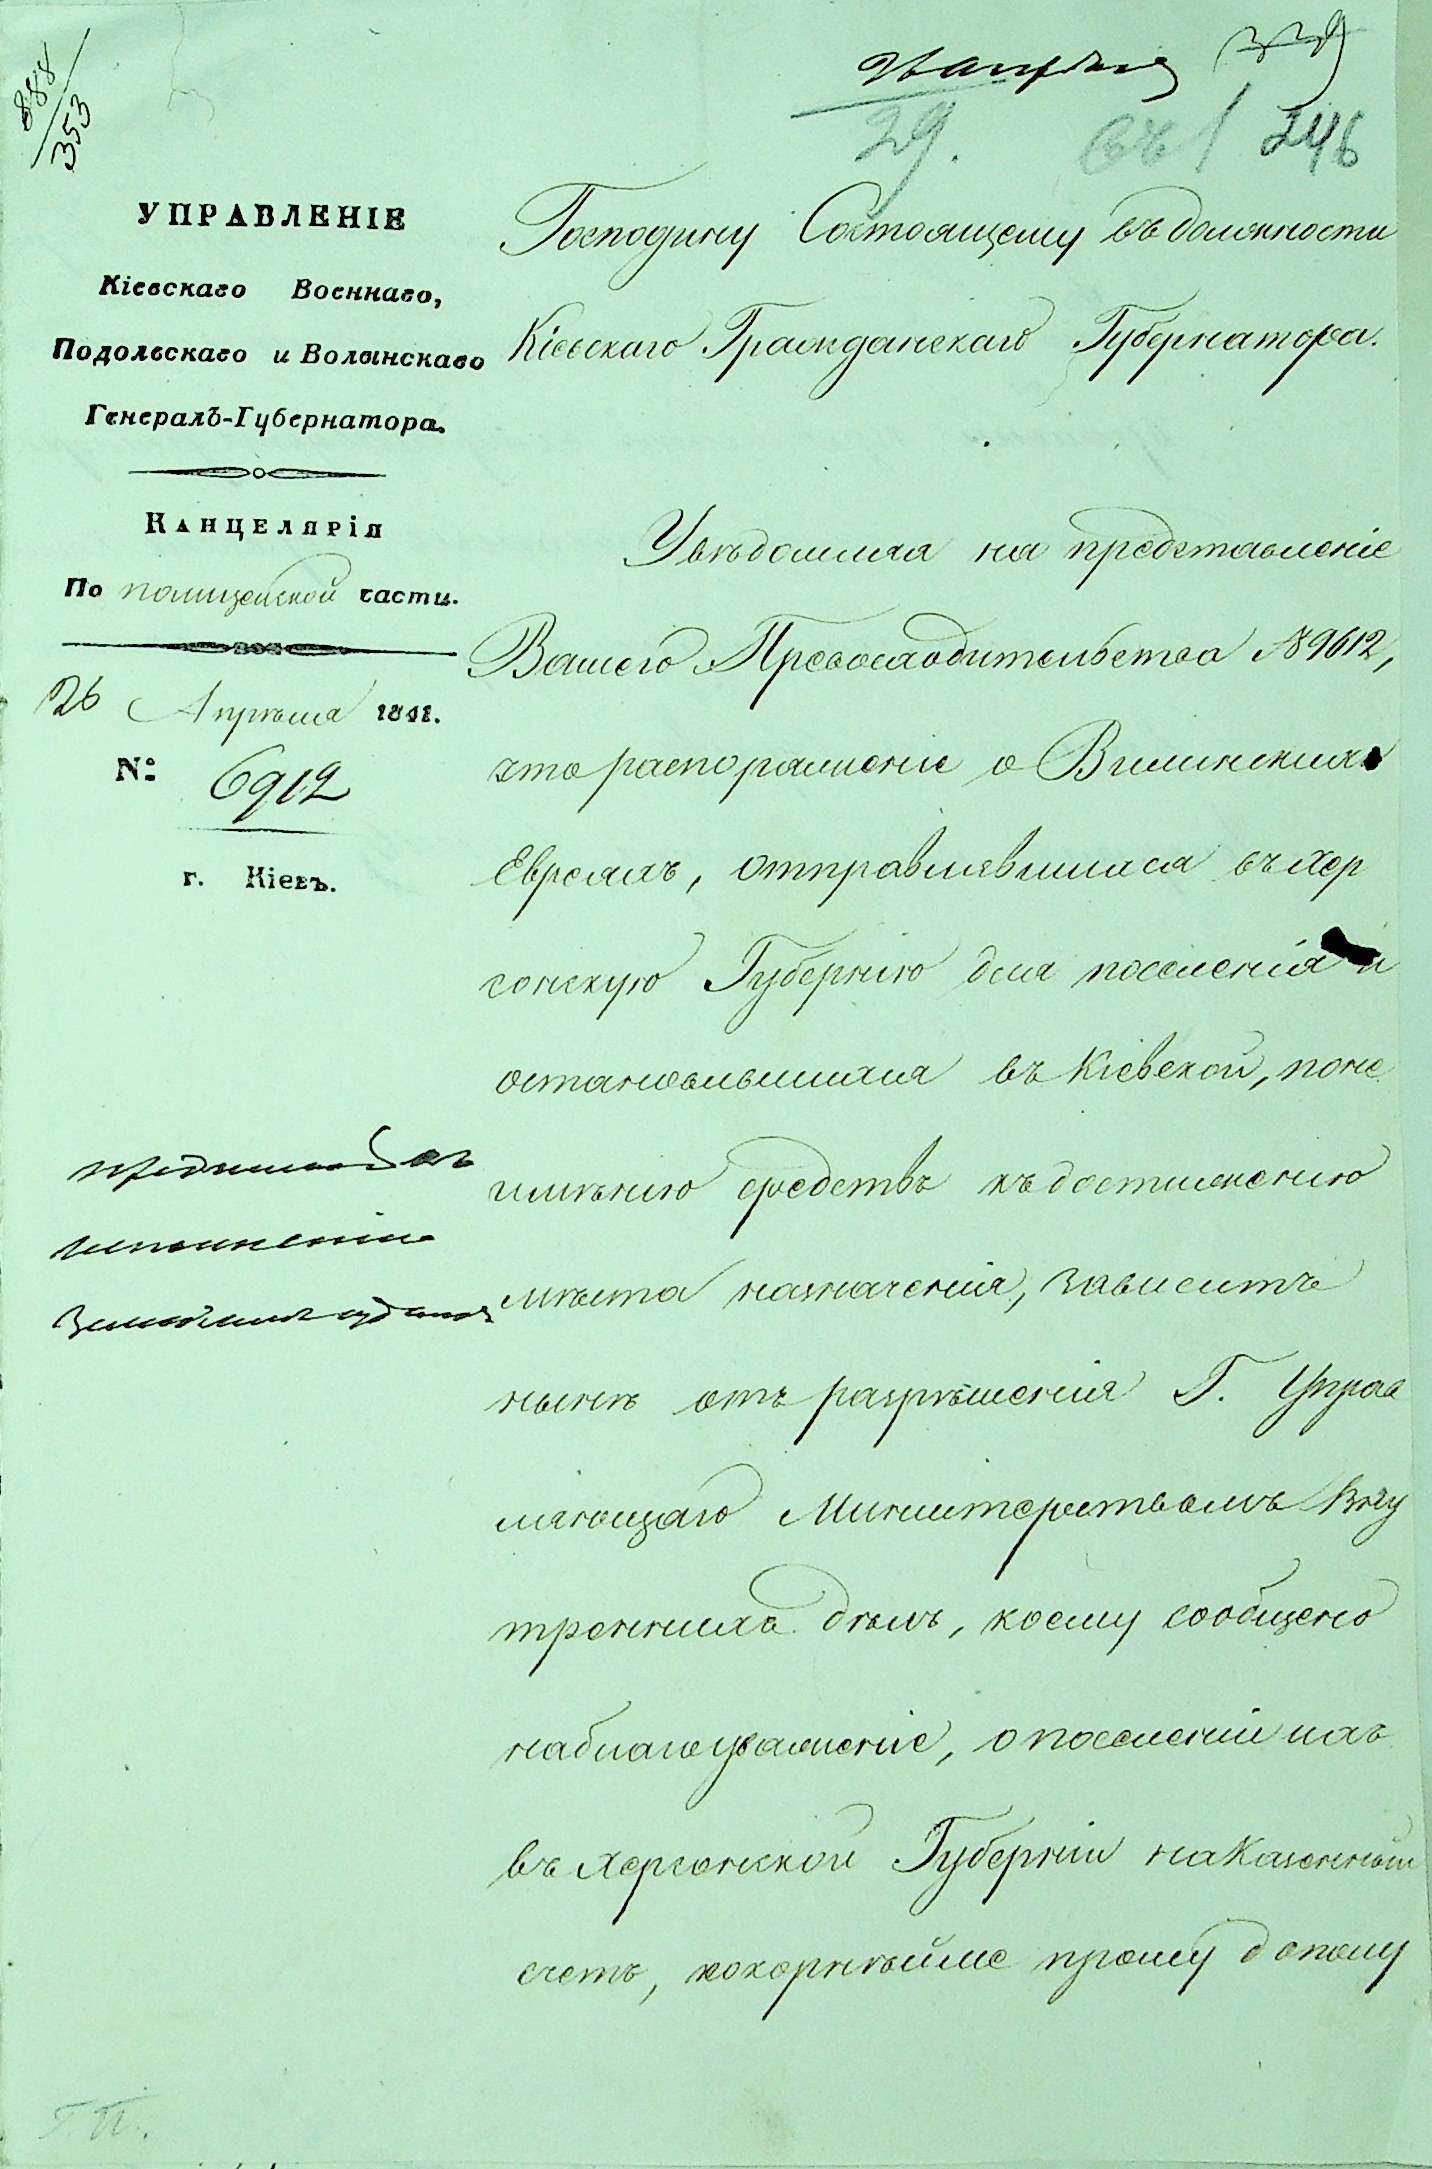 888
353
29.
246
УПРАВЛЕНІЕ
Кіевскаго Военнаго,
Подольскаго и Волынскаго
Генералъ-Губернатора.
КАНЦЕЛЯРІЯ
По полицейской части.
26 Апрѣля 1841.
№ 6912
г. Кіевъ.
Господину Состоящему въ должности
Кіевскаго Гражданскаго Губернатора.
Увѣдомляя на представленіе
Вашего Превосходительства №9612,
что распоряженіе о Виленскихъ
Евреяхъ, отправлявшихся въ Хер
сонскую Губернію для поселенія и
остановившихся въ Кіевской, по не
имѣнію средствъ къ достиженію
мѣста назначенія, зависитъ
нынѣ отъ разрѣшенія Г. Управ
ляющаго Министерствомъ Вну
треннихъ дѣлъ, коему сообщено
на благоуваженіе, о поселеніи ихъ
въ Херсонской Губерніи на Казенный
счетъ, покорнѣйше прошу до пол
Г. П.